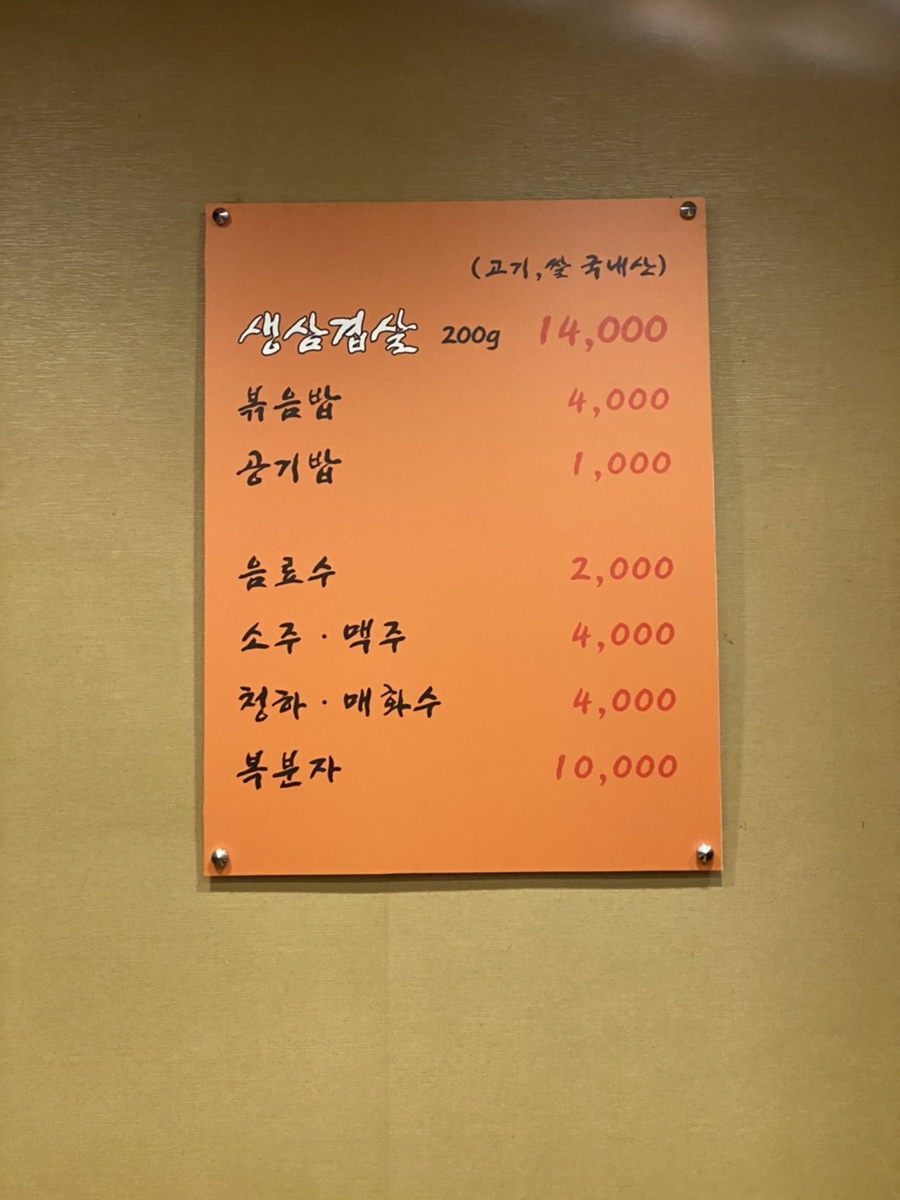 (고기,쌀 국내산)
생삼겹살 200g 14,000
볶음밥 4,000
공기밥 1,000
음료수 2,000
소주·맥주 4,000
청하·매화수 4,000
복분자 10,000